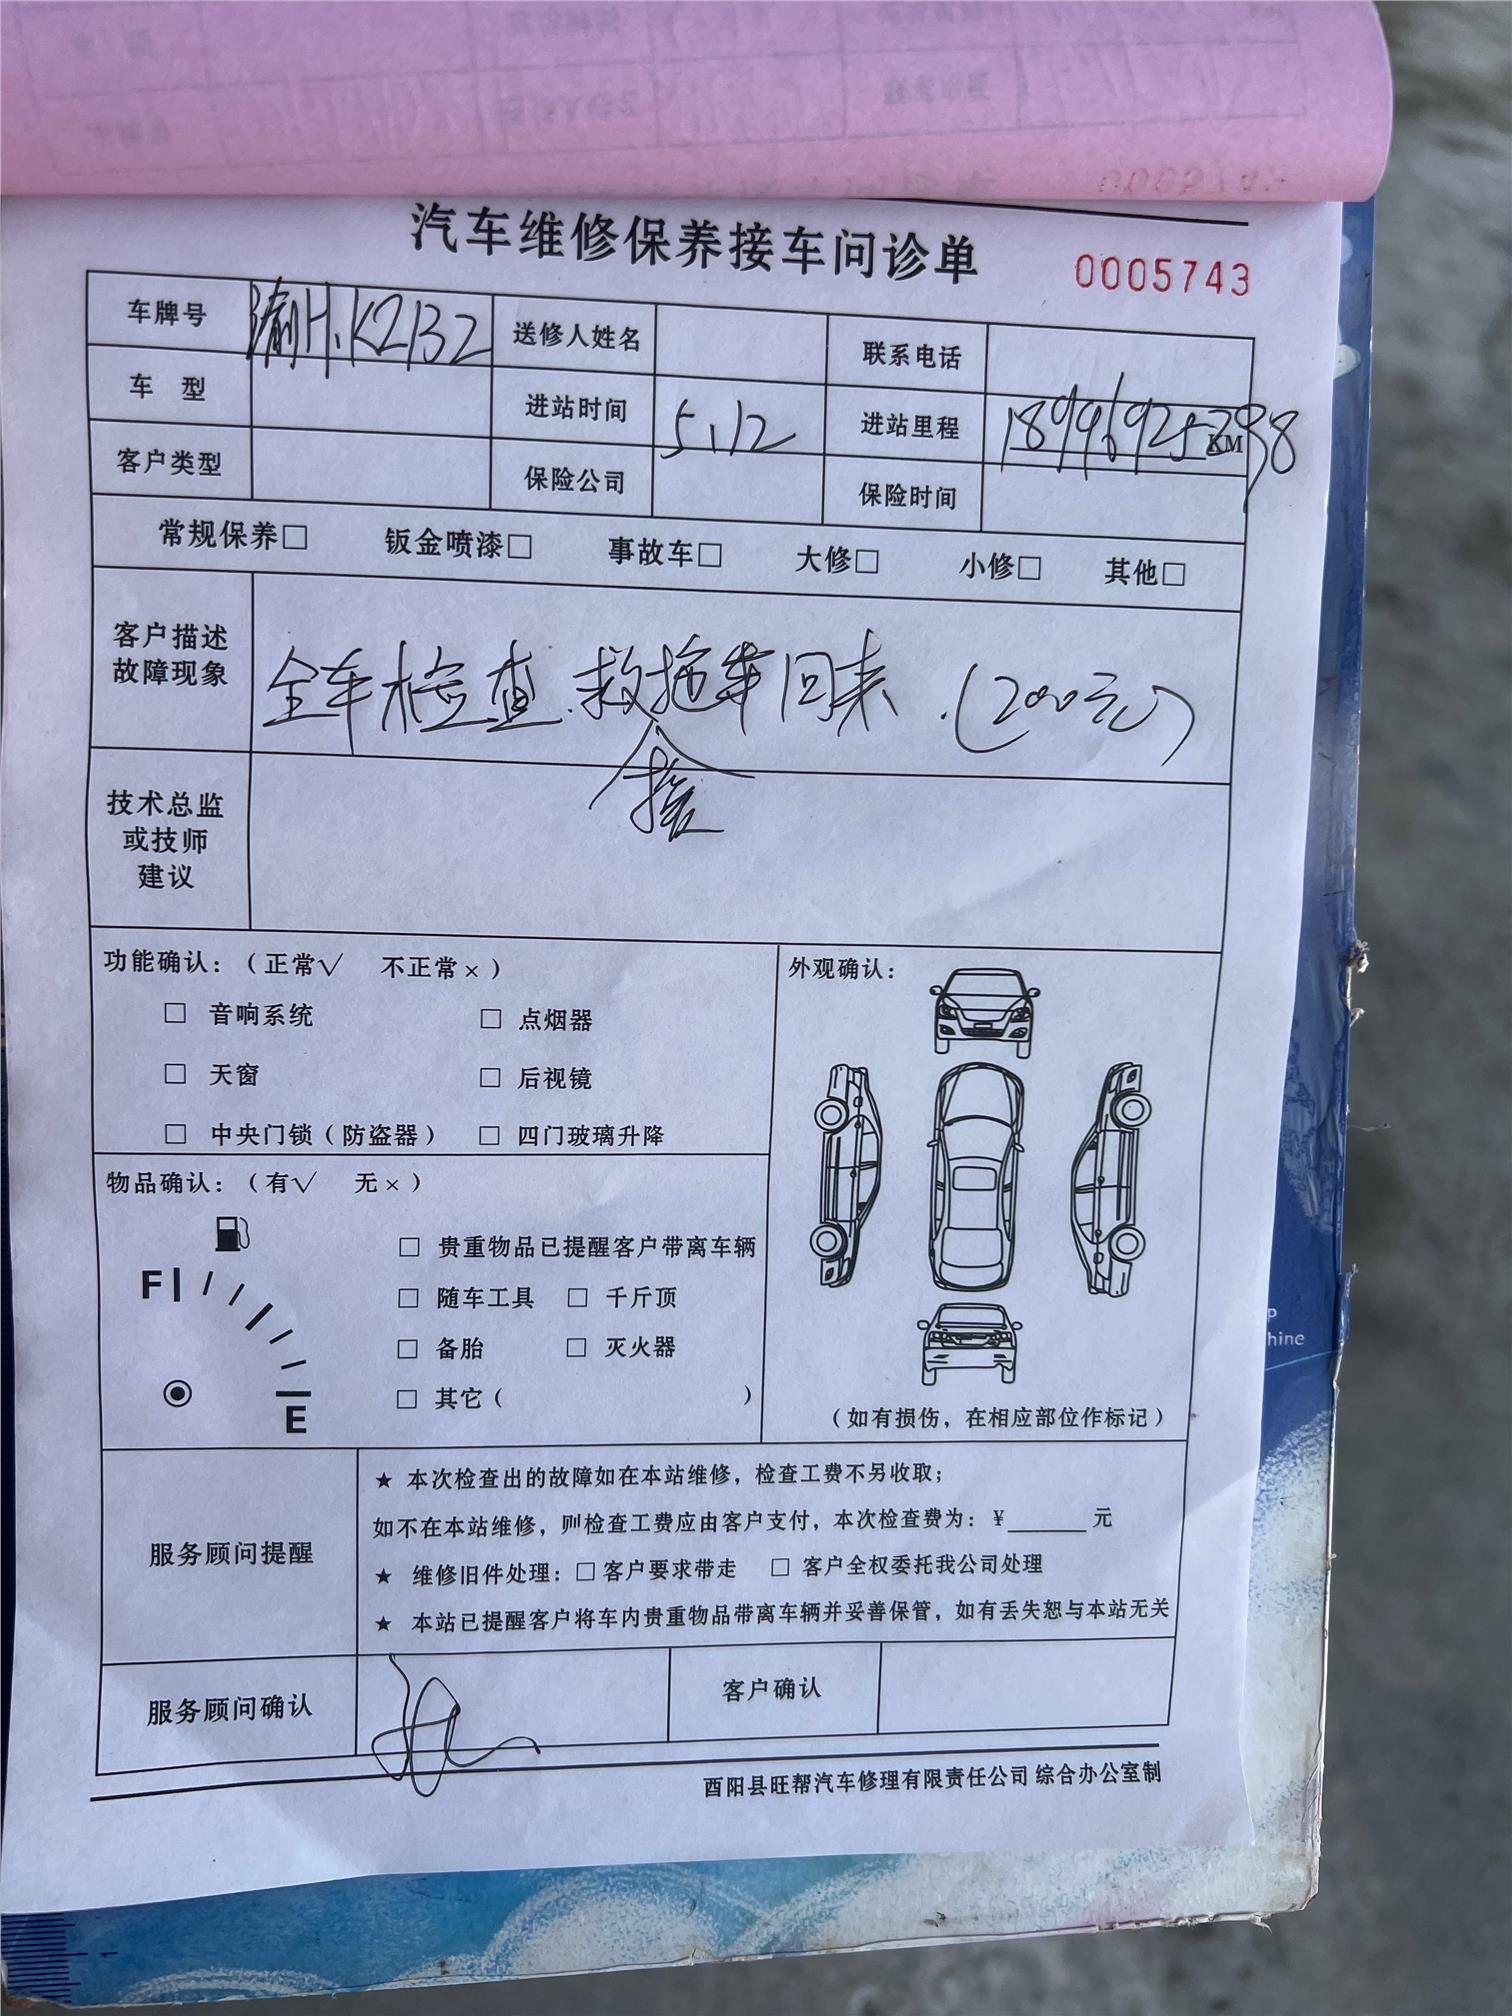 汽车维修保养接车问诊单 0005743
车牌号 渝H.K2B32 送修人姓名 联系电话
车 型 进站时间 5.12 进站里程 18996925298 KM
客户类型 保险公司 保险时间
常规保养□ 钣金喷漆□ 事故车□ 大修□ 小修□ 其他□
客户描述
故障现象
全车检查.救拖车回来.(200元)
援
技术总监
或技师
建议
功能确认:(正常√ 不正常×)
□ 音响系统 □ 点烟器
□ 天窗 □ 后视镜
□ 中央门锁(防盗器) □ 四门玻璃升降
外观确认:
(如有损伤,在相应部位作标记)
物品确认:(有√ 无×)
F
E
□ 贵重物品已提醒客户带离车辆
□ 随车工具 □ 千斤顶
□ 备胎 □ 灭火器
□ 其它( )
服务顾问提醒
★ 本次检查出的故障如在本站维修,检查工费不另收取;
如不在本站维修,则检查工费应由客户支付,本次检查费为:¥______元
★ 维修旧件处理:□ 客户要求带走 □ 客户全权委托我公司处理
★ 本站已提醒客户将车内贵重物品带离车辆并妥善保管,如有丢失恕与本站无关
服务顾问确认 客户确认
酉阳县旺帮汽车修理有限责任公司 综合办公室制
hine